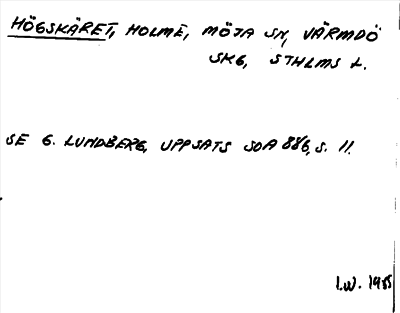 HÖGSKÄRET, HOLME, MÖJA SN, VÄRMDÖ
SKG, STHLMS L.
SE G. LUNDBERG, UPPSATS SOA 886, S. 11.
I.W. 1985